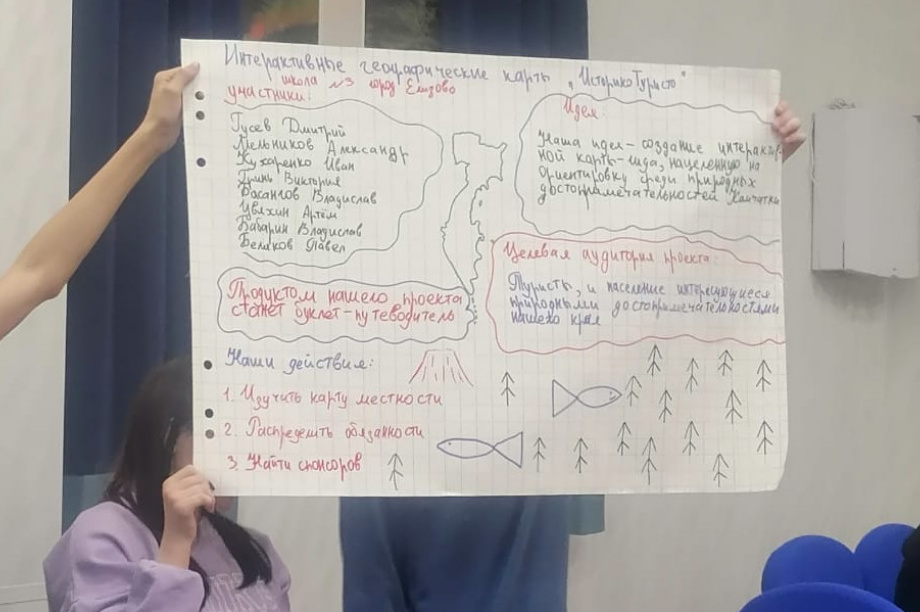 Интерактивные географические карты "ИсторикоТуристо"
школа №3 город Елизово
участники:
Гусев Дмитрий
Мельников Александр
Кухаренко Иван
Гринь Виктория
Владислав
Увяхин Артём
Бабарин Владислав
Беликов Павел
Идея:
Наша идея - создание интерактив-
ной карты-гида, нацеленную на
ориентировку среди природных
достопримечательностей Камчатки
Целевая аудитория проекта:
Туристы, и население интересующиеся
природными достопримечательностями
нашего края
Продуктом нашего проекта
станет буклет-путеводитель
Наши действия:
1. Изучить карту местности
2. Распределить обязанности
3. Найти спонсоров